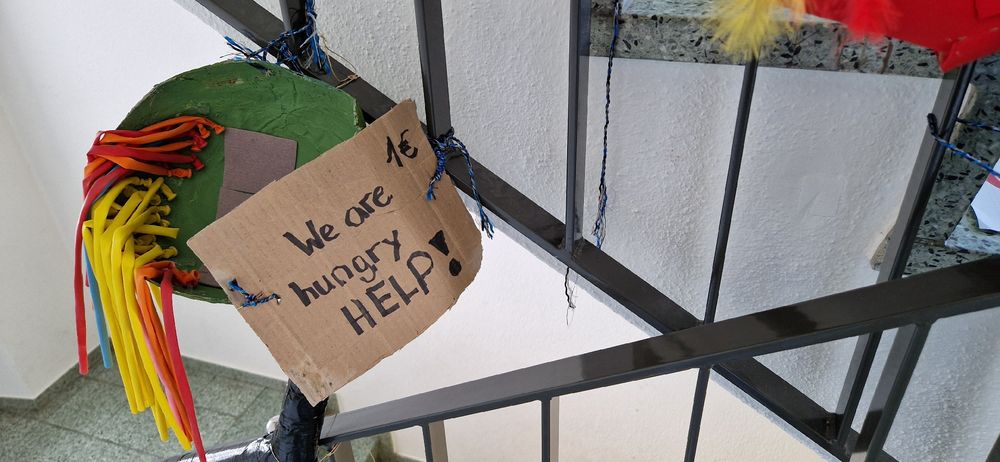 1€
We are
hungry
HELP!